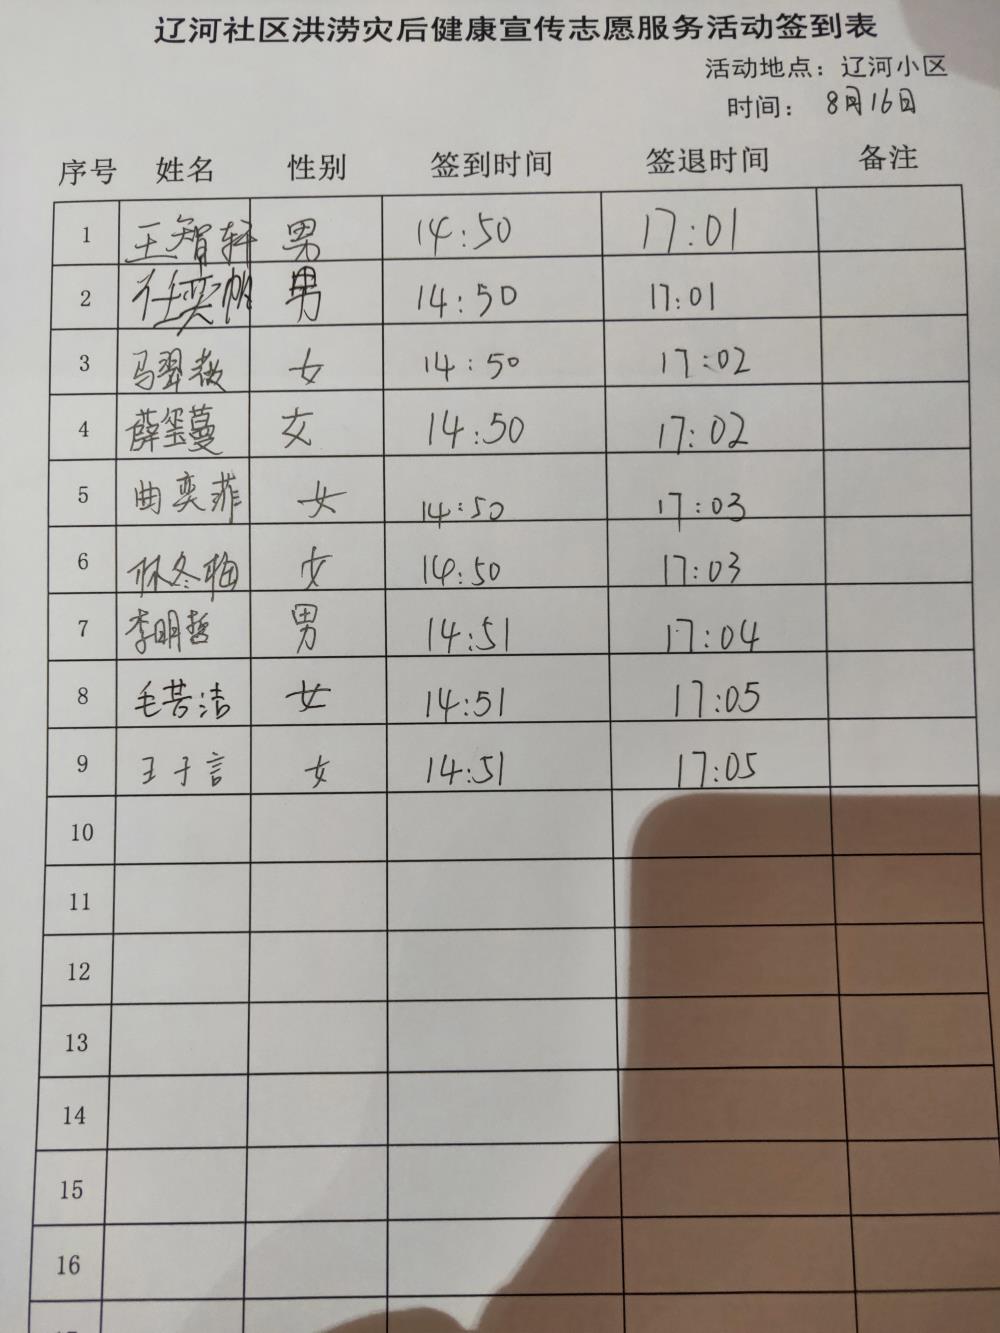 辽河社区洪涝灾后健康宣传志愿服务活动签到表
活动地点：辽河小区
时间： 8月16日
序号 姓名 性别 签到时间 签退时间 备注
1 王智轩 男 14:50 17:01
2 任奕帆 男 14:50 17:01
3 马翠薇 女 14:50 17:02
4 薛玺蔓 女 14:50 17:02
5 曲奕菲 女 14:50 17:03
6 林冬梅 女 14:50 17:03
7 李明哲 男 14:51 17:04
8 毛若洁 女 14:51 17:05
9 王子言 女 14:51 17:05
10
11
12
13
14
15
16